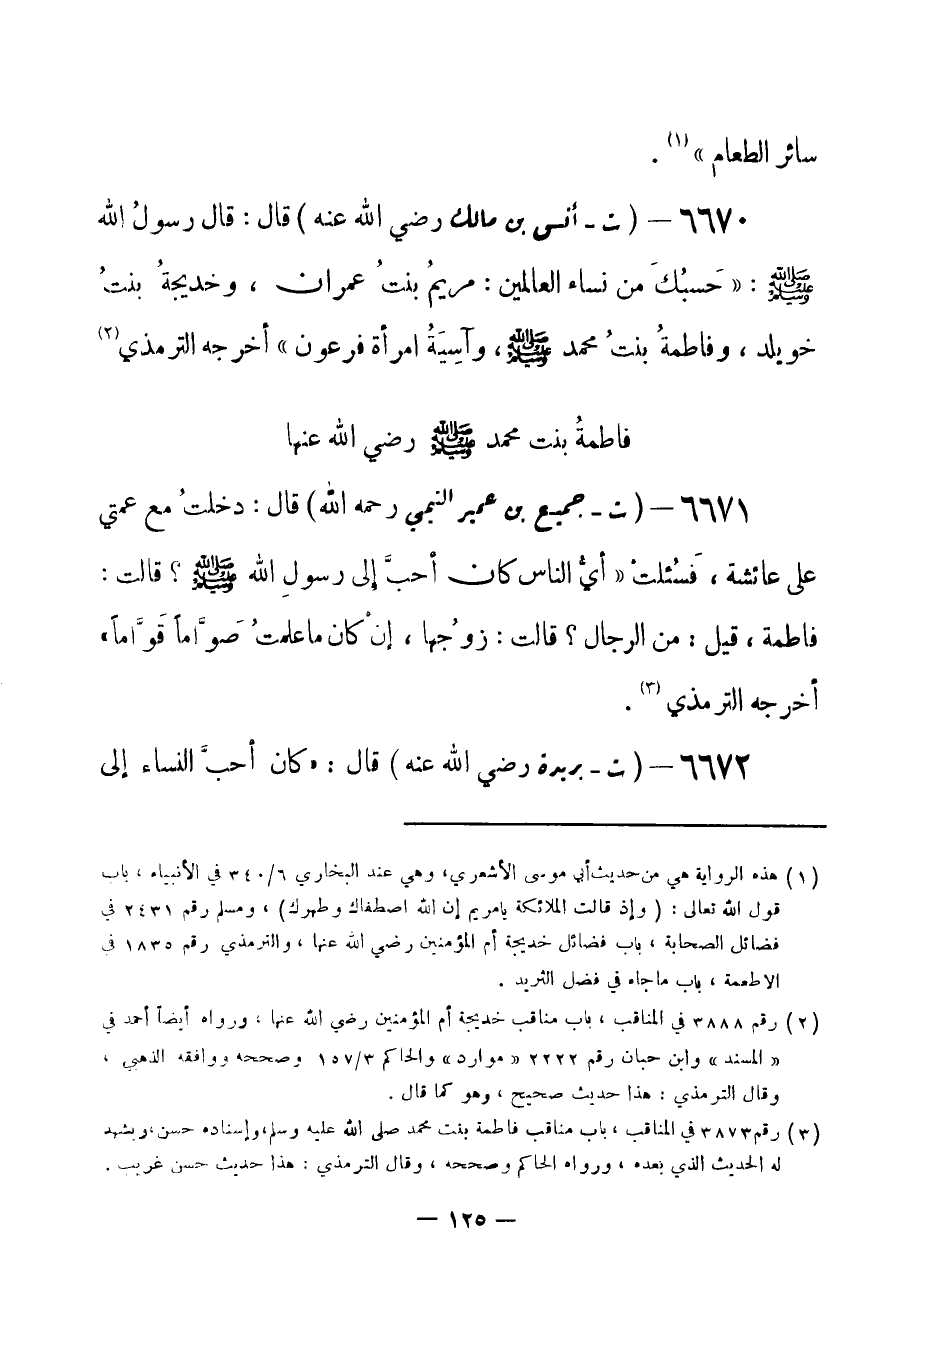 سائر الطعام » (١) .
٦٦٧٠ – ( ت - أنس بن مالك رضي الله عنه ) قال : قال رسولُ الله
ﷺ : « حَسبُكَ من نساء العالمين : مريمُ بنتُ عمران ، وخديجةُ بنتُ
خويلد ، وفاطمةُ بنتُ محمد ﷺ ، وآسِيَةُ امرأة فرعون » أخرجه الترمذي (٢)
فاطمةُ بنت محمد ﷺ رضي الله عنها
٦٦٧١ – ( ت - جميع بن عمير التيمي رحمه الله ) قال : دخلتُ مع عمتي
على عائشة ، فَسُئلتْ « أيُّ الناس كان أحبَّ إلى رسولِ الله ﷺ ؟ قالت :
فاطمة ، قيل : من الرجال ؟ قالت : زوُجها ، إنْ كان ماعلمتُ صَوَّاماً قَوَّاماً »
أخرجه الترمذي (٣) .
٦٦٧٢ – ( ت - بريدة رضي الله عنه ) قال : « كان أحبَّ النساء إلى
(١) هذه الرواية هي من حديث أبي موسى الأشعري، وهي عند البخاري ٣٤٠/٦ في الأنبياء ، باب
قول الله تعالى : ( وإذ قالت الملائكة يامريم إن الله اصطفاك وطهرك ) ، ومسلم رقم ٢٤٣١ في
فضائل الصحابة ، باب فضائل خديجة أم المؤمنين رضي الله عنها ، والترمذي رقم ١٨٣٥ في
الاطعمة ، باب ماجاء في فضل الثريد .
(٢) رقم ٣٨٨٨ في المناقب ، باب مناقب خديجة أم المؤمنين رضي الله عنها ، ورواه أيضاً أحمد في
« المسند » وابن حبان رقم ٢٢٢٢ « موارد » والحاكم ١٥٧/٣ وصححه ووافقه الذهبي ،
وقال الترمذي : هذا حديث صحيح ، وهو كما قال .
(٣) رقم ٣٨٧٣ في المناقب ، باب مناقب فاطمة بنت محمد صلى الله عليه وسلم، وإسناده حسن، ويشهد
له الحديث الذي بعده ، ورواه الحاكم وصححه ، وقال الترمذي : هذا حديث حسن غريب .
– ١٢٥ –